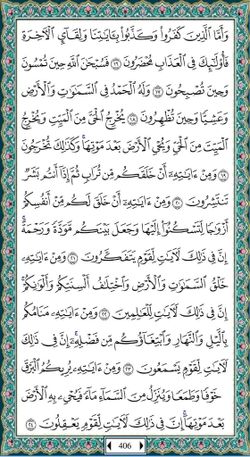 وَأَمَّا ٱلَّذِينَ كَفَرُوا۟ وَكَذَّبُوا۟ بِـَٔايَـٰتِنَا وَلِقَآئِ ٱلْـَٔاخِرَةِ
فَأُو۟لَـٰٓئِكَ فِى ٱلْعَذَابِ مُحْضَرُونَ ١٦ فَسُبْحَـٰنَ ٱللَّهِ حِينَ تُمْسُونَ
وَحِينَ تُصْبِحُونَ ١٧ وَلَهُ ٱلْحَمْدُ فِى ٱلسَّمَـٰوَٰتِ وَٱلْأَرْضِ
وَعَشِيًّا وَحِينَ تُظْهِرُونَ ١٨ يُخْرِجُ ٱلْحَىَّ مِنَ ٱلْمَيِّتِ وَيُخْرِجُ
ٱلْمَيِّتَ مِنَ ٱلْحَىِّ وَيُحْىِ ٱلْأَرْضَ بَعْدَ مَوْتِهَا ۚ وَكَذَٰلِكَ تُخْرَجُونَ
١٩ وَمِنْ ءَايَـٰتِهِۦٓ أَنْ خَلَقَكُم مِّن تُرَابٍ ثُمَّ إِذَآ أَنتُم بَشَرٌ
تَنتَشِرُونَ ٢٠ وَمِنْ ءَايَـٰتِهِۦٓ أَنْ خَلَقَ لَكُم مِّنْ أَنفُسِكُمْ
أَزْوَٰجًا لِّتَسْكُنُوٓا۟ إِلَيْهَا وَجَعَلَ بَيْنَكُم مَّوَدَّةً وَرَحْمَةً ۚ
إِنَّ فِى ذَٰلِكَ لَـَٔايَـٰتٍ لِّقَوْمٍ يَتَفَكَّرُونَ ٢١ وَمِنْ ءَايَـٰتِهِۦ
خَلْقُ ٱلسَّمَـٰوَٰتِ وَٱلْأَرْضِ وَٱخْتِلَـٰفُ أَلْسِنَتِكُمْ وَأَلْوَٰنِكُمْ ۚ
إِنَّ فِى ذَٰلِكَ لَـَٔايَـٰتٍ لِّلْعَـٰلِمِينَ ٢٢ وَمِنْ ءَايَـٰتِهِۦ مَنَامُكُم
بِٱلَّيْلِ وَٱلنَّهَارِ وَٱبْتِغَآؤُكُم مِّن فَضْلِهِۦٓ ۚ إِنَّ فِى ذَٰلِكَ
لَـَٔايَـٰتٍ لِّقَوْمٍ يَسْمَعُونَ ٢٣ وَمِنْ ءَايَـٰتِهِۦ يُرِيكُمُ ٱلْبَرْقَ
خَوْفًا وَطَمَعًا وَيُنَزِّلُ مِنَ ٱلسَّمَآءِ مَآءً فَيُحْىِۦ بِهِ ٱلْأَرْضَ
بَعْدَ مَوْتِهَآ ۚ إِنَّ فِى ذَٰلِكَ لَـَٔايَـٰتٍ لِّقَوْمٍ يَعْقِلُونَ ٢٤
406